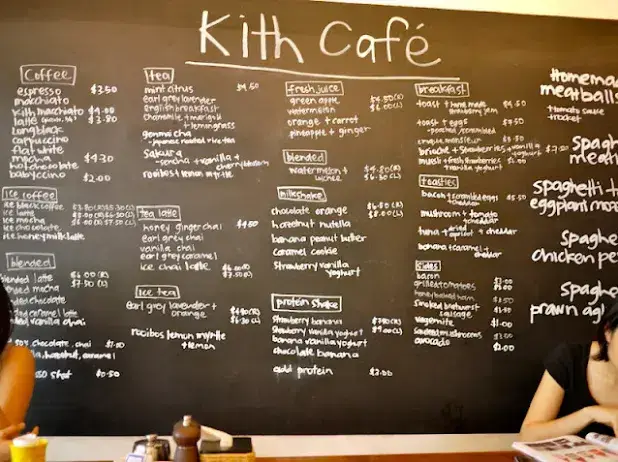 Kith Café
Coffee
espresso $3.50
macchiato
kith macchiato $4.00
latte $3.80
longblack
cappuccino
flat white
mocha $4.30
hot chocolate
babyccino $2.00
ice coffee
ice black coffee
ice latte
ice mocha
ice chocolate
ice honey milk latte
blended
blended latte $6.00 (R)
mocha $7.50 (L)
chocolate
caramel latte
vanilla chai
soy, chocolate, chai
hazelnut, caramel
shot $0.50
tea
mint citrus $4.50
earl grey lavender
english breakfast
chamomile + marigold
+ lemongrass
genmai cha
- japanese roasted rice tea
sakura
- sencha + vanilla +
cherry blossom
rooibos lemon myrtle
tea latte
honey ginger chai $4.50
earl grey chai
vanilla chai
earl grey caramel
ice chai latte $6.00 (R)
$7.50 (L)
ice tea
earl grey lavender + $4.80 (R)
orange $6.30 (L)
rooibos lemon myrtle
+ lemon
fresh juice
green apple $4.50 (R)
watermelon $6.00 (L)
orange + carrot
pineapple + ginger
blended
watermelon + $4.80 (R)
lychee $6.30 (L)
milkshake
chocolate orange $6.50 (R)
hazelnut nutella $8.00 (L)
banana peanut butter
caramel cookie
strawberry vanilla
yoghurt
protein shake
strawberry banana
strawberry vanilla yoghurt
banana vanilla yoghurt
chocolate banana
add protein $2.00
breakfast
toast + home made $4.50
jam
toast + eggs
- poached/scrambled
croque monsieur
brioche + strawberries + vanilla
yoghurt
muesli + fresh strawberries
+ vanilla yoghurt
toasties
bacon + scrambled eggs
+ cheddar
mushroom + tomato
+ cheddar
tuna + dried apricot + cheddar
banana + caramel +
cheddar
sides
bacon
grilled tomatoes
honey baked ham
smoked bratwurst
sausage
vegemite
sauteed mushrooms
avocado $2.00
Homemad
meatballs
+ tomato sauce
+ rocket
spagh
meatb
spaghetti +
eggplant mozz
spaghe
chicken pe
spaghe
prawn agl